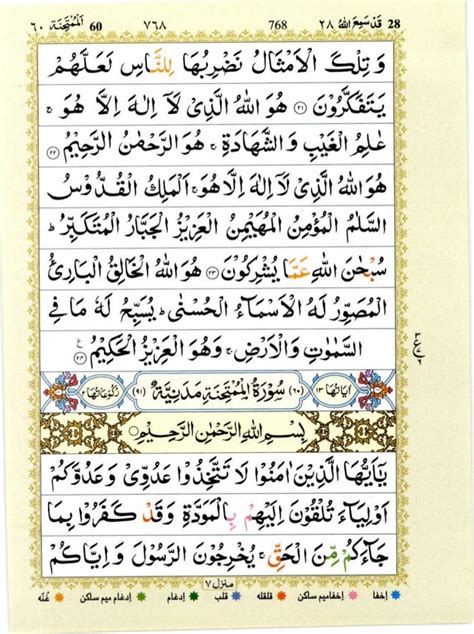 28 قَدْ سَمِعَ اللّٰهُ ٢٨ 768 ٧٦٨ 60 اَلْمُمْتَحِنَة ٦٠
وَ تِلْكَ الْاَمْثَالُ نَضْرِبُهَا لِلنَّاسِ لَعَلَّهُمْ
يَتَفَكَّرُوْنَ ﴿٢١﴾ هُوَ اللّٰهُ الَّذِيْ لَاۤ اِلٰهَ اِلَّا هُوَ ۚ
عٰلِمُ الْغَيْبِ وَ الشَّهَادَةِ ۚ هُوَ الرَّحْمٰنُ الرَّحِيْمُ ﴿٢٢﴾
هُوَ اللّٰهُ الَّذِيْ لَاۤ اِلٰهَ اِلَّا هُوَ ۚ اَلْمَلِكُ الْقُدُّوْسُ
السَّلٰمُ الْمُؤْمِنُ الْمُهَيْمِنُ الْعَزِيْزُ الْجَبَّارُ الْمُتَكَبِّرُ ؕ
سُبْحٰنَ اللّٰهِ عَمَّا يُشْرِكُوْنَ ﴿٢٣﴾ هُوَ اللّٰهُ الْخَالِقُ الْبَارِئُ
الْمُصَوِّرُ لَهُ الْاَسْمَآءُ الْحُسْنٰى ؕ يُسَبِّحُ لَهٗ مَا فِي
السَّمٰوٰتِ وَ الْاَرْضِ ۚ وَ هُوَ الْعَزِيْزُ الْحَكِيْمُ ﴿٢٤﴾
اٰيَاتُهَا ١٣ (٦٠) سُوْرَةُ الْمُمْتَحِنَةِ مَدَنِيَّةٌ (٩١) رُكُوْعَاتُهَا ٢
بِسْمِ اللّٰهِ الرَّحْمٰنِ الرَّحِيْمِ
يٰۤاَيُّهَا الَّذِيْنَ اٰمَنُوْا لَا تَتَّخِذُوْا عَدُوِّيْ وَ عَدُوَّكُمْ
اَوْلِيَآءَ تُلْقُوْنَ اِلَيْهِمْ بِالْمَوَدَّةِ وَ قَدْ كَفَرُوْا بِمَا
جَآءَكُمْ مِّنَ الْحَقِّ ۚ يُخْرِجُوْنَ الرَّسُوْلَ وَ اِيَّاكُمْ
منزل ٧
اخفا اخفا میم ساکن قلقله قلب ادغام ادغام میم ساکن غُنّه